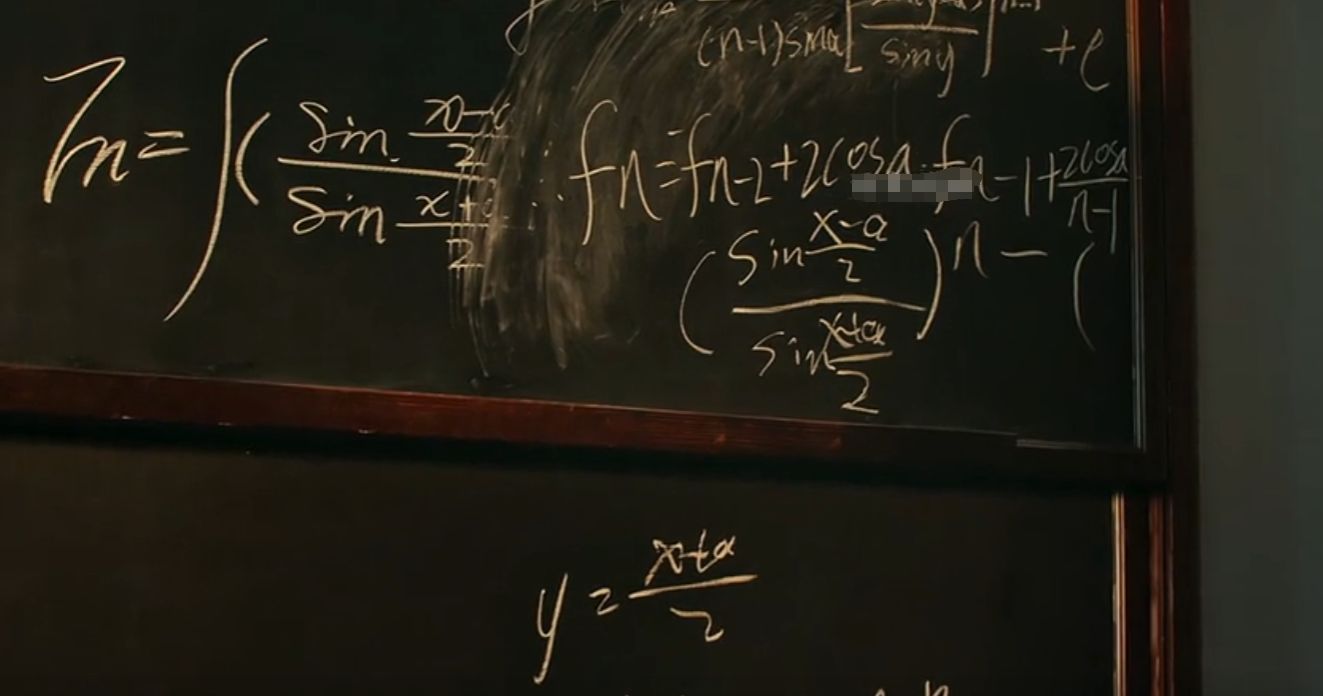 (n-1)sinα[ /siny] +C
In=∫(sin x-α/2 / sin x+α/2 ∴ fn=fn-2+2cosα·fn-1+2cosα/n-1
(sin x-α/2 / sin x+α/2)^n-(
y=x+α/2